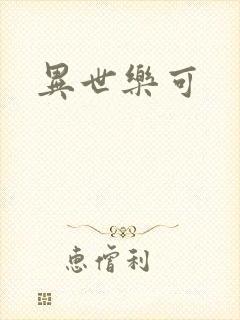 異世樂可
惠僧利